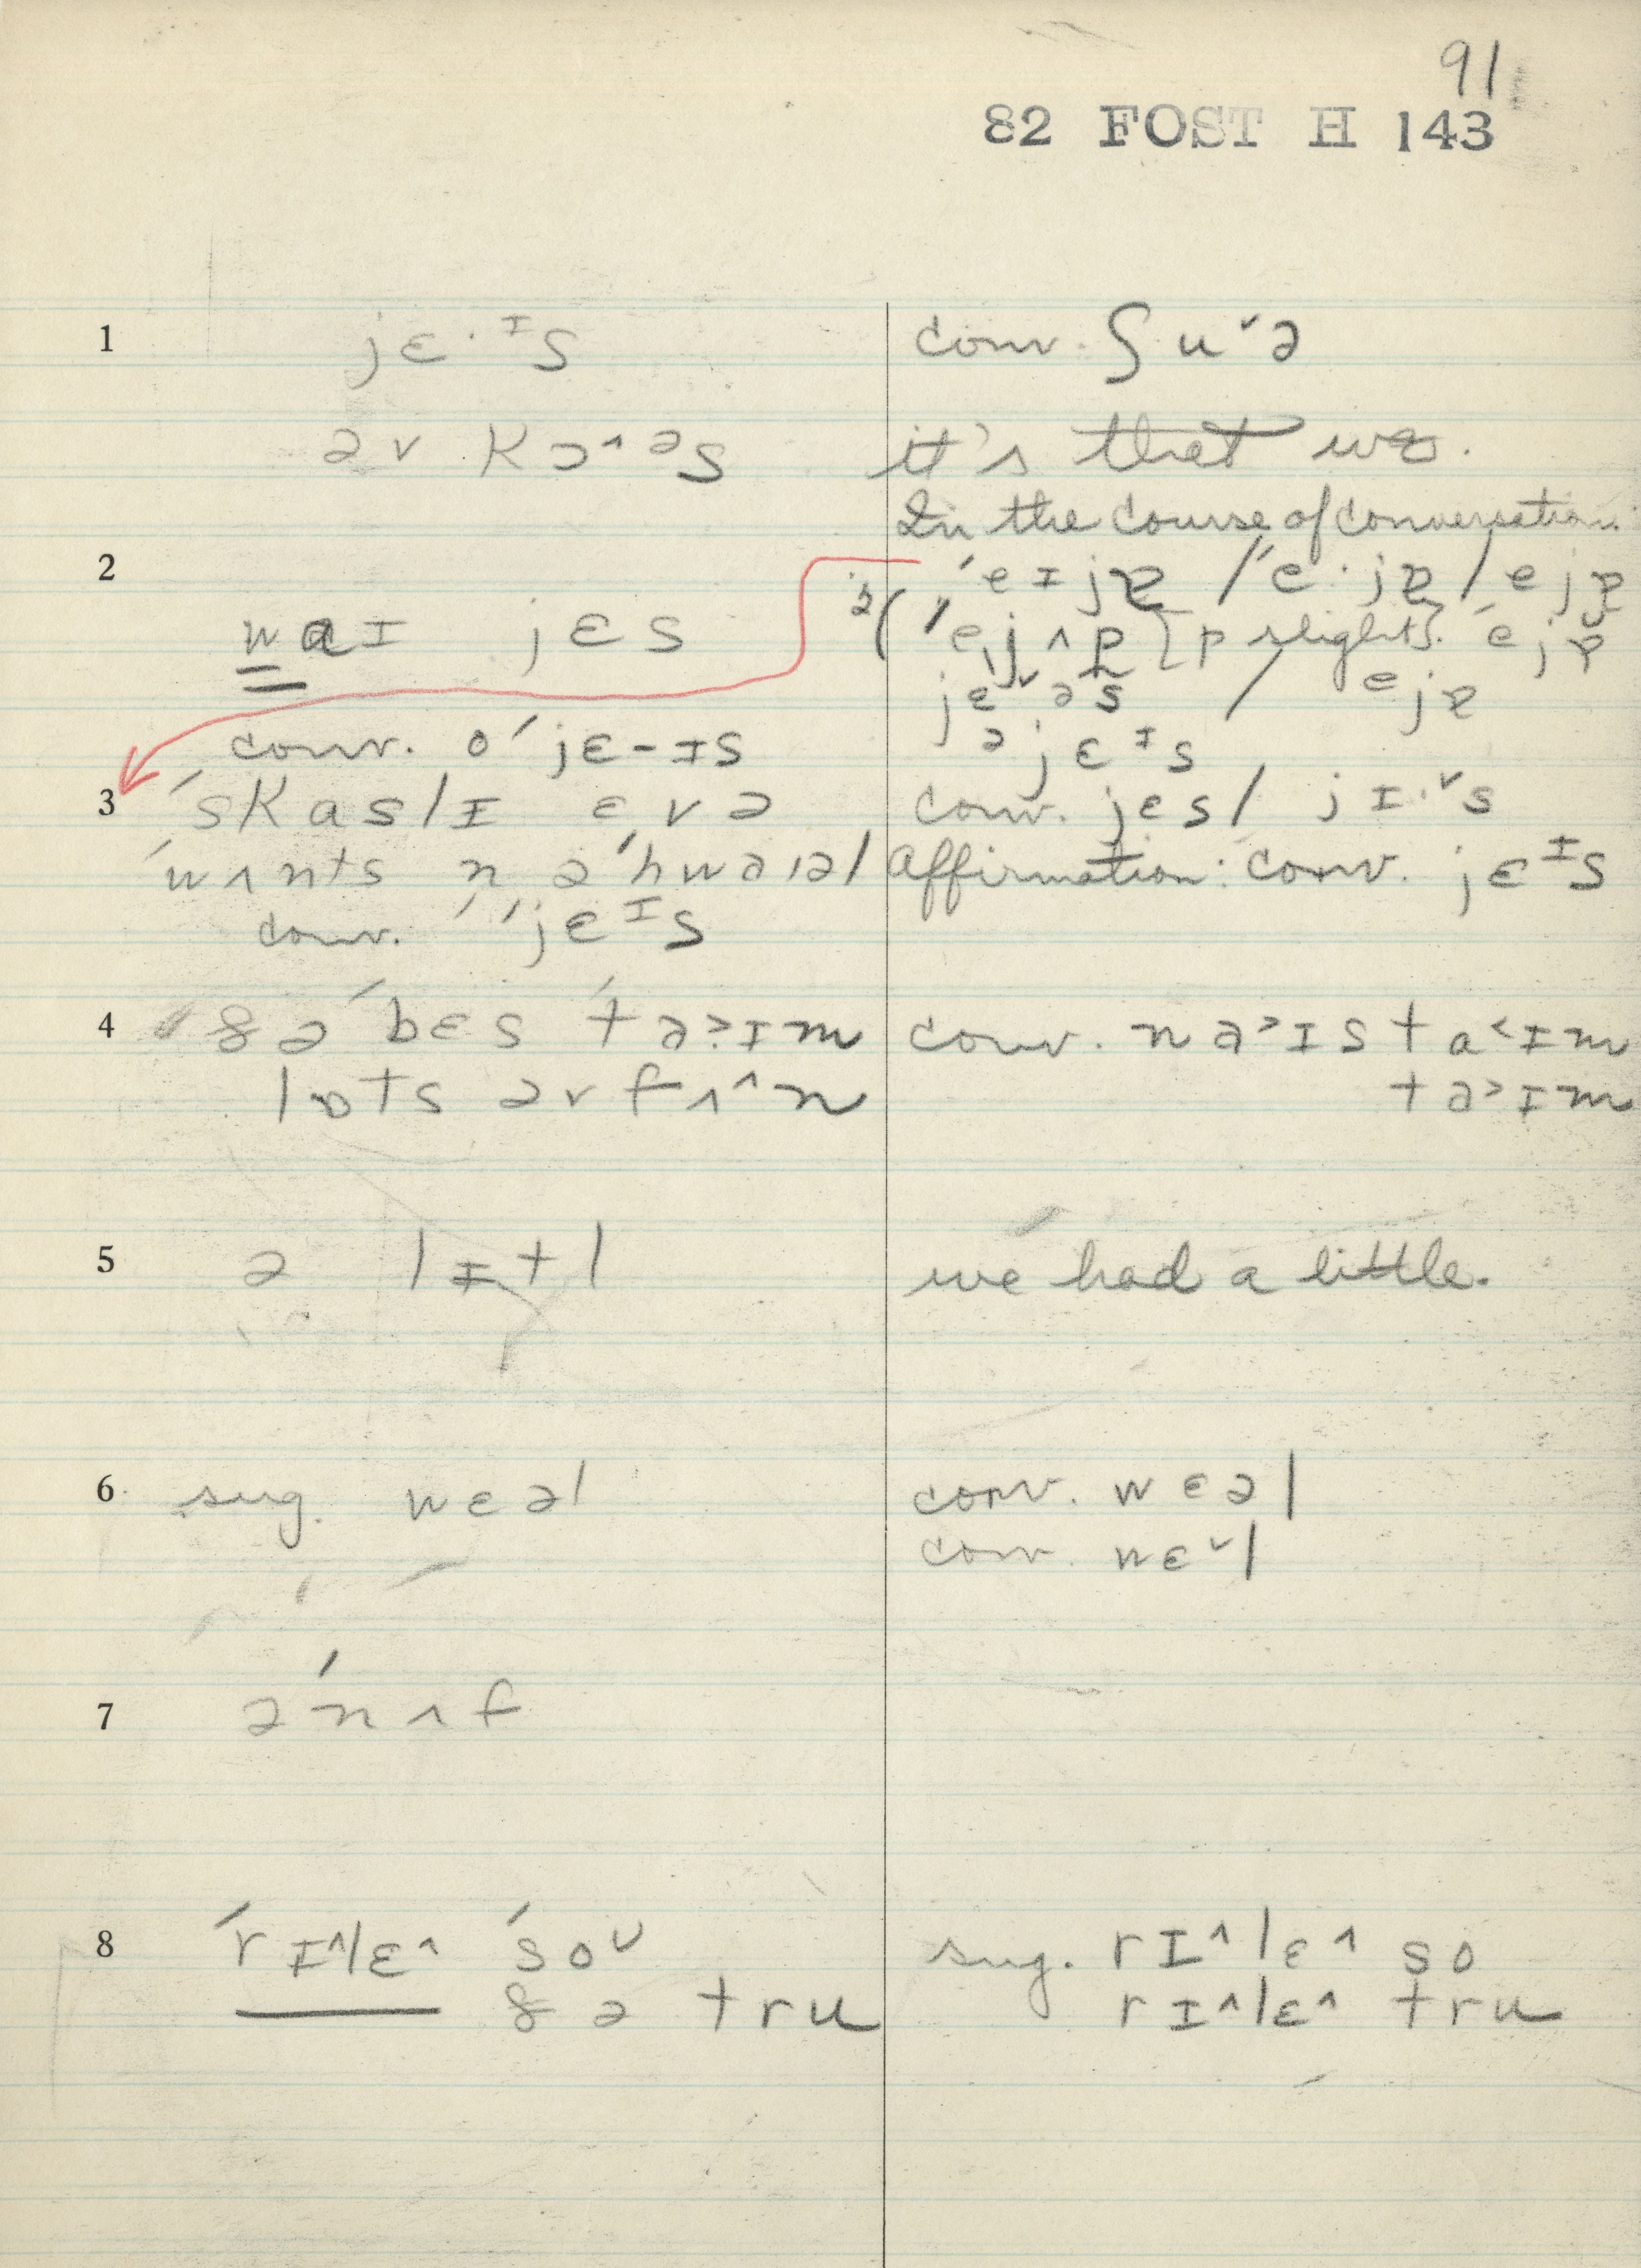 91
82 FOST H 143
1 jɛ·ᶦs
conv. ʃuˇə
əv kɔ^əs
it's that we.
In the course of conversation.
2
ˈeɪjɐ / ˈe·jɐ / ejɐ
wɑɪ jɛs
ˈejʌp [p slight]. ˈejɐ
jɛˇəs / ejɐ
conv. oˈjɛ-ɪs
əjɛᶦs
3 ˈskaslɪ ɛvə
conv. jɛs / jɪ·ˇs
ˈwʌnts n əˈhwaɪəl
affirmation: conv. jɛᶦs
conv. ˈˈjɛᶦs
4 ðə ˈbɛs ˈta>ɪm
conv. na>ɪs ta<ɪm
lɒts əv fʌ^n
ta>ɪm
5 ə lɪtl
we had a little.
6 sug. wɛəl
conv. wɛəl
conv. wɛˇl
7 əˈnʌf
8 ˈrɪ^lɛ^ ˈsoᵘ
sug. rɪ^lɛ^ so
ðə tru
rɪ^lɛ^ tru